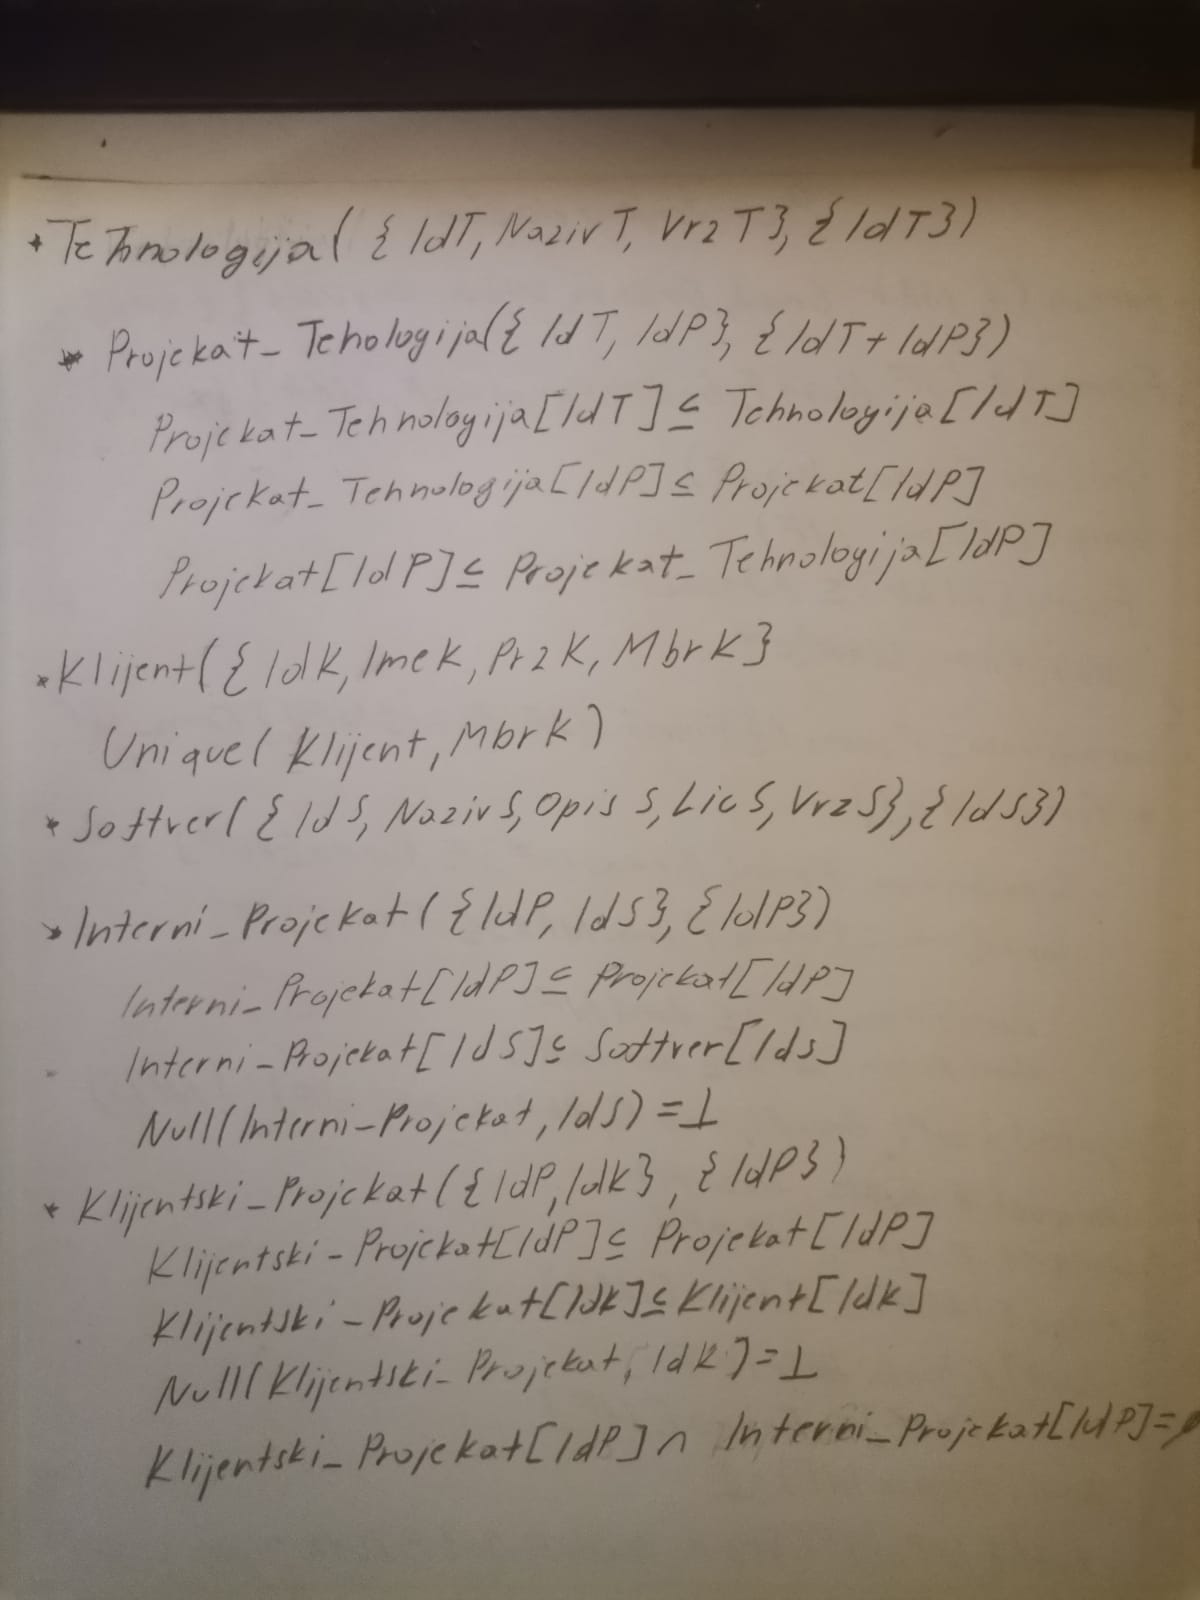 * Tehnologija({IdT, NazivT, VrzT}, {IdT})
* Projekat_Tehologija({IdT, IdP}, {IdT+IdP})
Projekat_Tehnologija[IdT]⊆ Tehnologija[IdT]
Projekat_Tehnologija[IdP]⊆ Projekat[IdP]
Projekat[IdP]⊆ Projekat_Tehnologija[IdP]
* Klijent({IdK, ImeK, PrzK, MbrK}
Unique(Klijent, MbrK)
* Softver({IdS, NazivS, OpisS, LicS, VrzS}, {IdS})
* Interni_Projekat({IdP, IdS}, {IdP})
Interni_Projekat[IdP]⊆ Projekat[IdP]
Interni_Projekat[IdS]⊆ Softver[Ids]
Null(Interni_Projekat, IdS)=⊥
* Klijentski_Projekat({IdP, IdK}, {IdP})
Klijentski_Projekat[IdP]⊆ Projekat[IdP]
Klijentski_Projekat[IdK]⊆ Klijent[IdK]
Null(Klijentski_Projekat, IdK)=⊥
Klijentski_Projekat[IdP]∩ Interni_Projekat[IdP]=∅